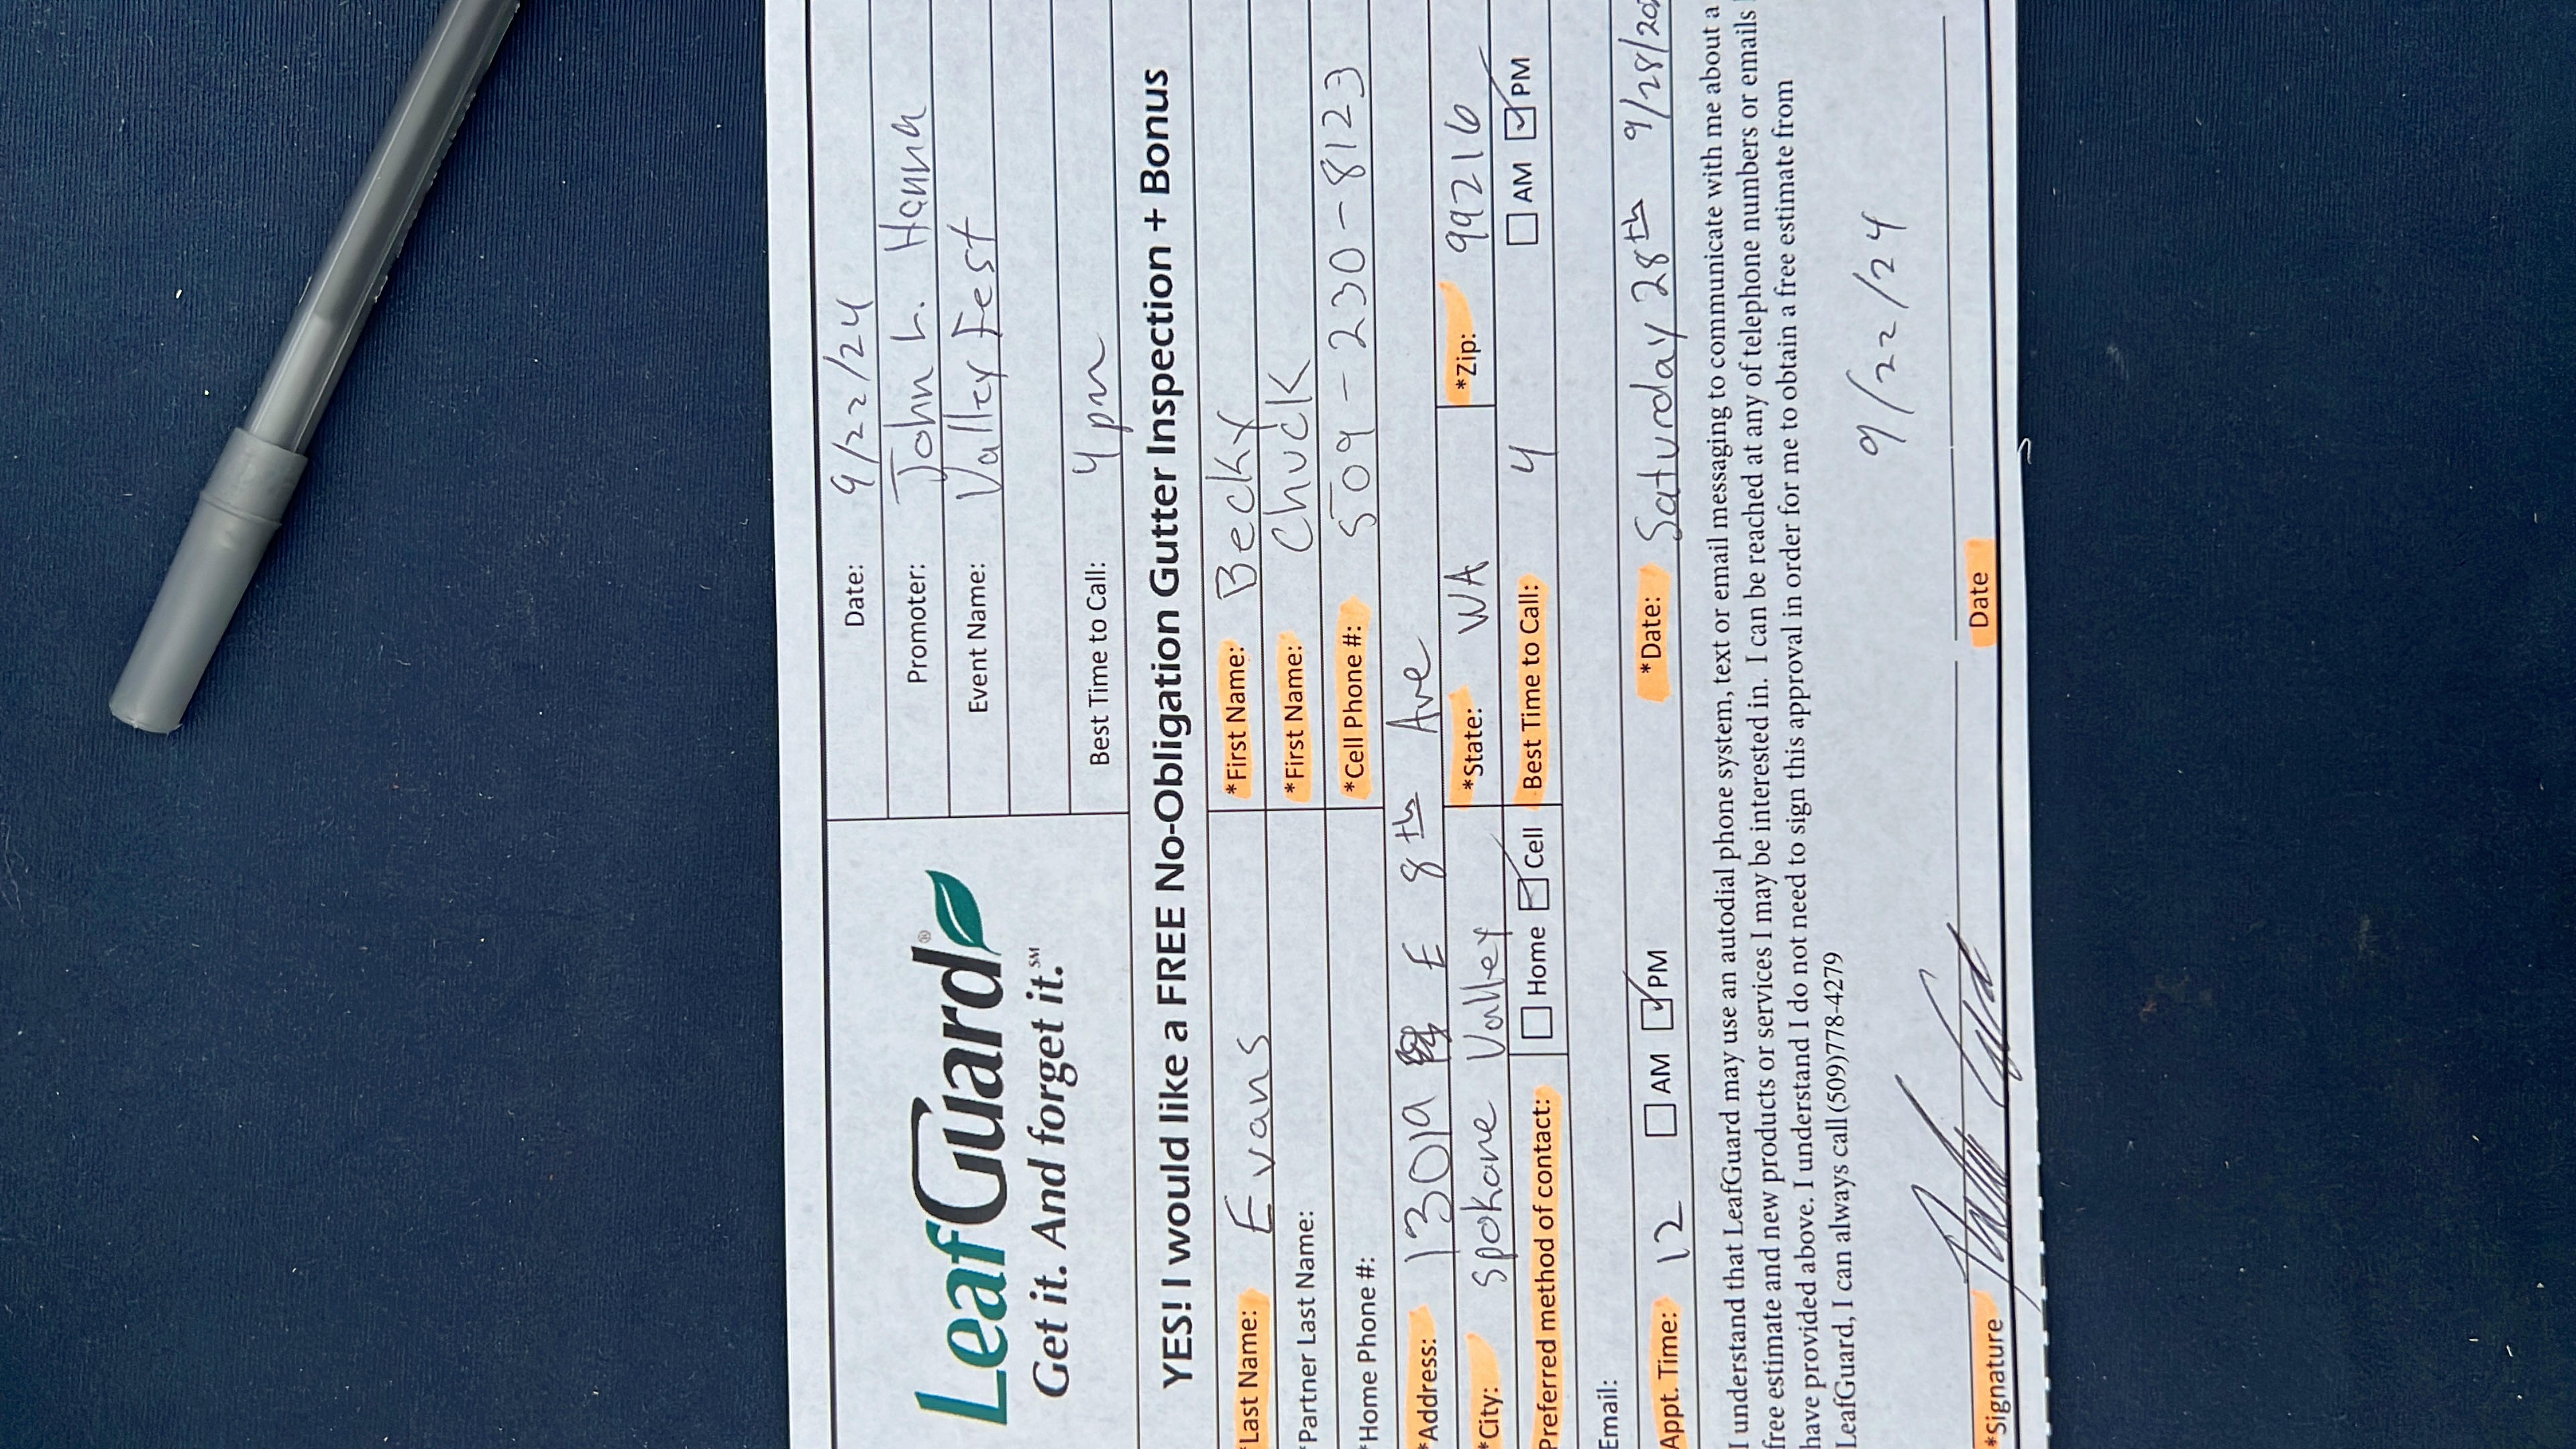 Date: 9/22/24
Promoter: John L. Hanna
LeafGuard®
Event Name: Valley Fest
Get it. And forget it.℠
Best Time to Call: 4 pm
YES! I would like a FREE No-Obligation Gutter Inspection + Bonus
*Last Name: Evans *First Name: Becky
*Partner Last Name: *First Name: Chuck
*Home Phone #: *Cell Phone #: 509-230-8123
*Address: 13019 E 8th Ave
*City: Spokane Valley *State: WA *Zip: 99216
Preferred method of contact: Home Cell Best Time to Call: 4 AM PM
Email:
Appt. Time: 12 AM PM *Date: Saturday 28th 9/28/20
I understand that LeafGuard may use an autodial phone system, text or email messaging to communicate with me about a
free estimate and new products or services I may be interested in. I can be reached at any of telephone numbers or emails
have provided above. I understand I do not need to sign this approval in order for me to obtain a free estimate from
LeafGuard, I can always call (509)778-4279
9/22/24
*Signature Date